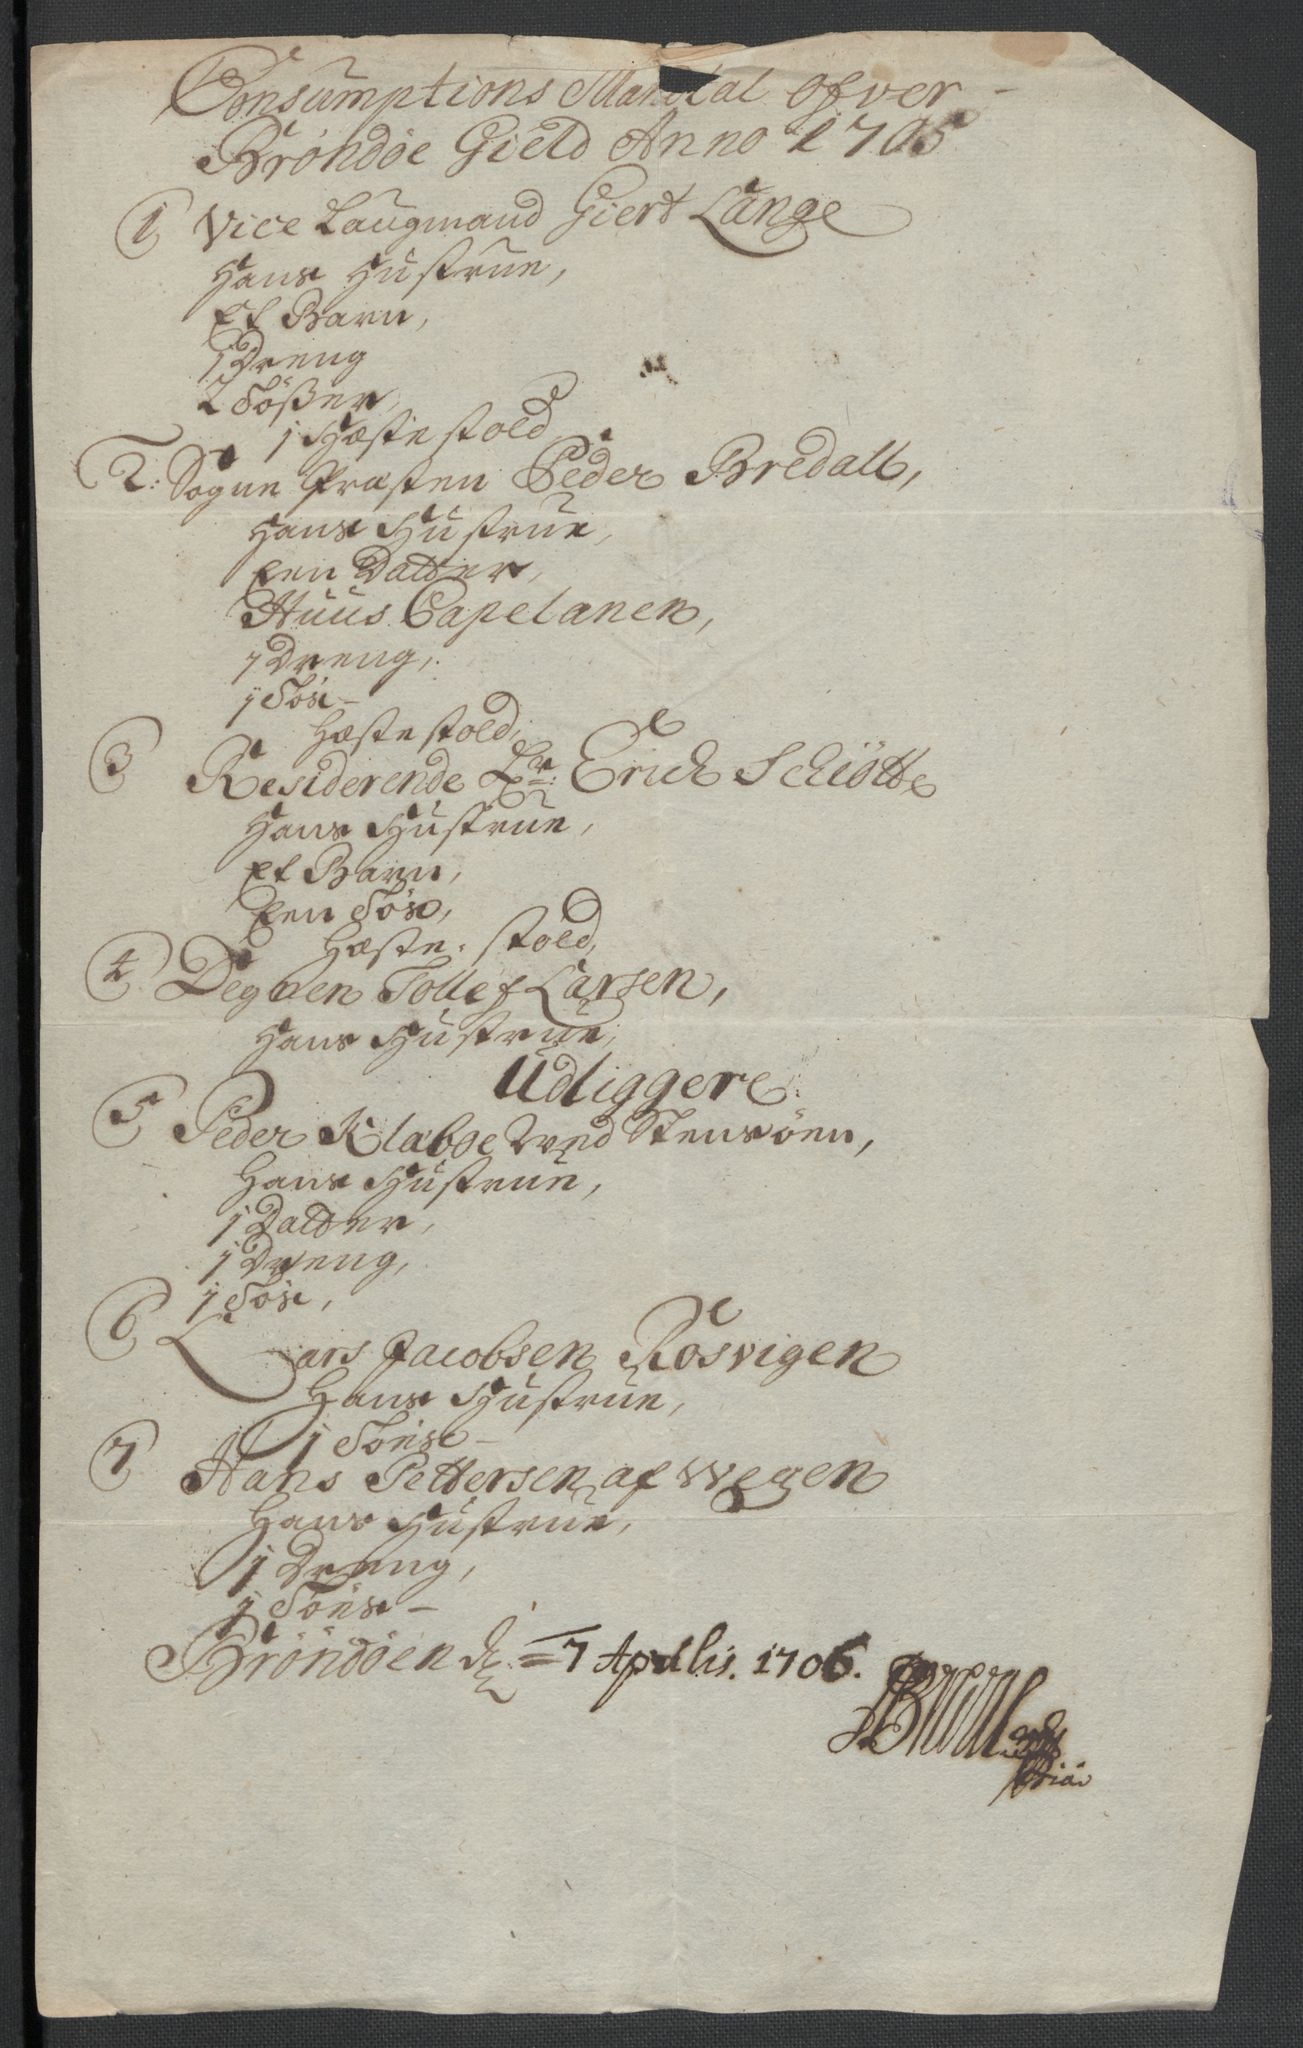 Consumptions Mandtal ofver
Bröndöe Gield Anno 1705
1 Vice Laugmand Giert Lange
Hans Hustrue,
Et Barn,
1 Dreng
2 Tößer,
1 Hæste skold
2: Sogne Præsten Peder Bredall,
Hans Hustrue,
Een Datter,
Huus Capelanen,
1 Dreng,
1 Tös
Hæste skold,
3 Residerende Hr: Erich Schiötte
Hans Hustrue,
Et Barn,
Een Tös,
Hæste skold,
4 Degnen Tollef Larsen,
Hans Hustrue,
Udliggere
5 Peder Klaboe ved Stensöen,
Hans Hustrue,
1 Datter,
1 Dreng,
1 Tös,
6 Lars Jacobsen Rosvigen
Hans Hustrue,
1 Töns
7 Hans Pettersen af Wegen
Hans Hustrue,
1 Dreng,
1 Töns
Bröndöen d: 7 Aprilis. 1706.
PBredal